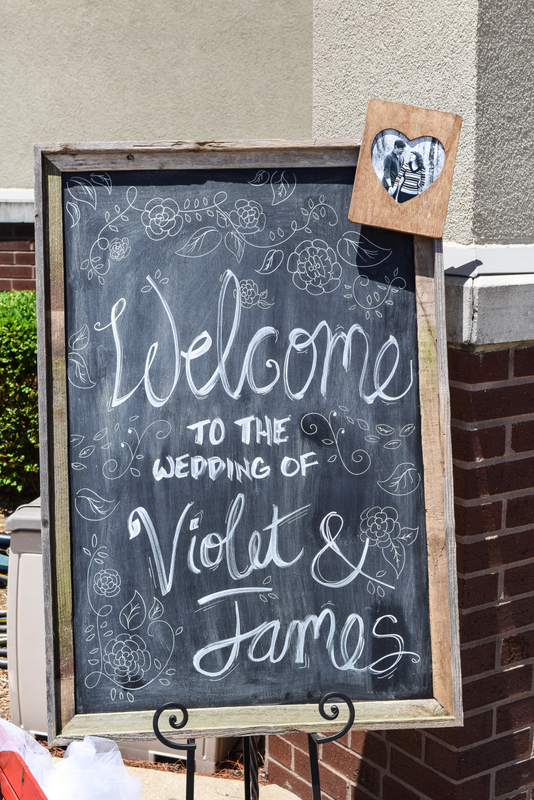 Welcome
TO THE
WEDDING OF
Violet &
James